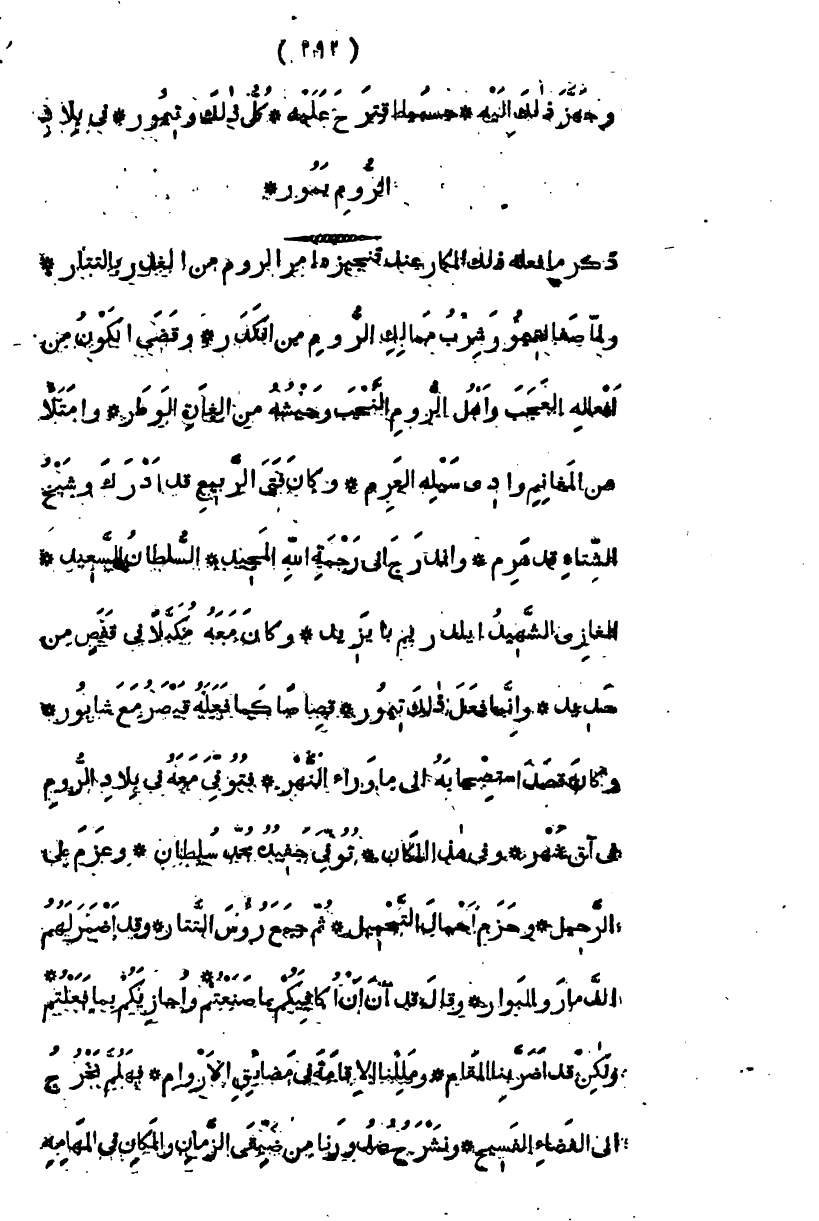 ( ٢٩٢ )
وجهّز ذلك اليه * حسبما اقترح عليه * كلّ ذلك وتيمور * في بلاد
الرّوم يمور *
ذكر ما فعله ذلك المكار عند تنجيزه امر الروم من الغدر بالتتار *
ولمّا صفا لتيمور شرب ممالك الرّوم من الكدر * وقضى الكون من
افعاله العجب واهل الرّوم النّحب وجيشه من الغارة الوطر * وامتلأ
من المغانيم وادى سيله العرم * وكان فتى الرّبيع قد ادرك وشيخ
الشّتاء قد هرم * واندرج الى رحمة اللّه المجيد * السّلطان السّعيد *
الغازى الشّهيد ايلدريم بايزيد * وكان معه مكبّلا في قفص من
حديد * وانّما فعل ذلك تيمور * قصاصا كما فعله قيصر مع شابور *
وكان قصد استصحابه الى ما وراء النّهر * فتوفّي معه في بلاد الرّوم
في آق شهر * وفي هذا المكان * توفّي حفيده محمد سلطان * وعزم على
الرّحيل * وحزم احمال التّحميل * ثمّ جمع رؤس التّتار * وقد اضمر لهم
الدّمار والبوار * وقال قد آن ان اكافيكم بما صنعتم * واجازيكم بما فعلتم *
ولكن قد اضرّ بنا المقام * ومللنا الاقامة في مضائق الاروام * فهلمّ نخرج
الى الفضاء الفسيح * ونشرح صدورنا من ضيقى الزّمان والمكان في المهامه